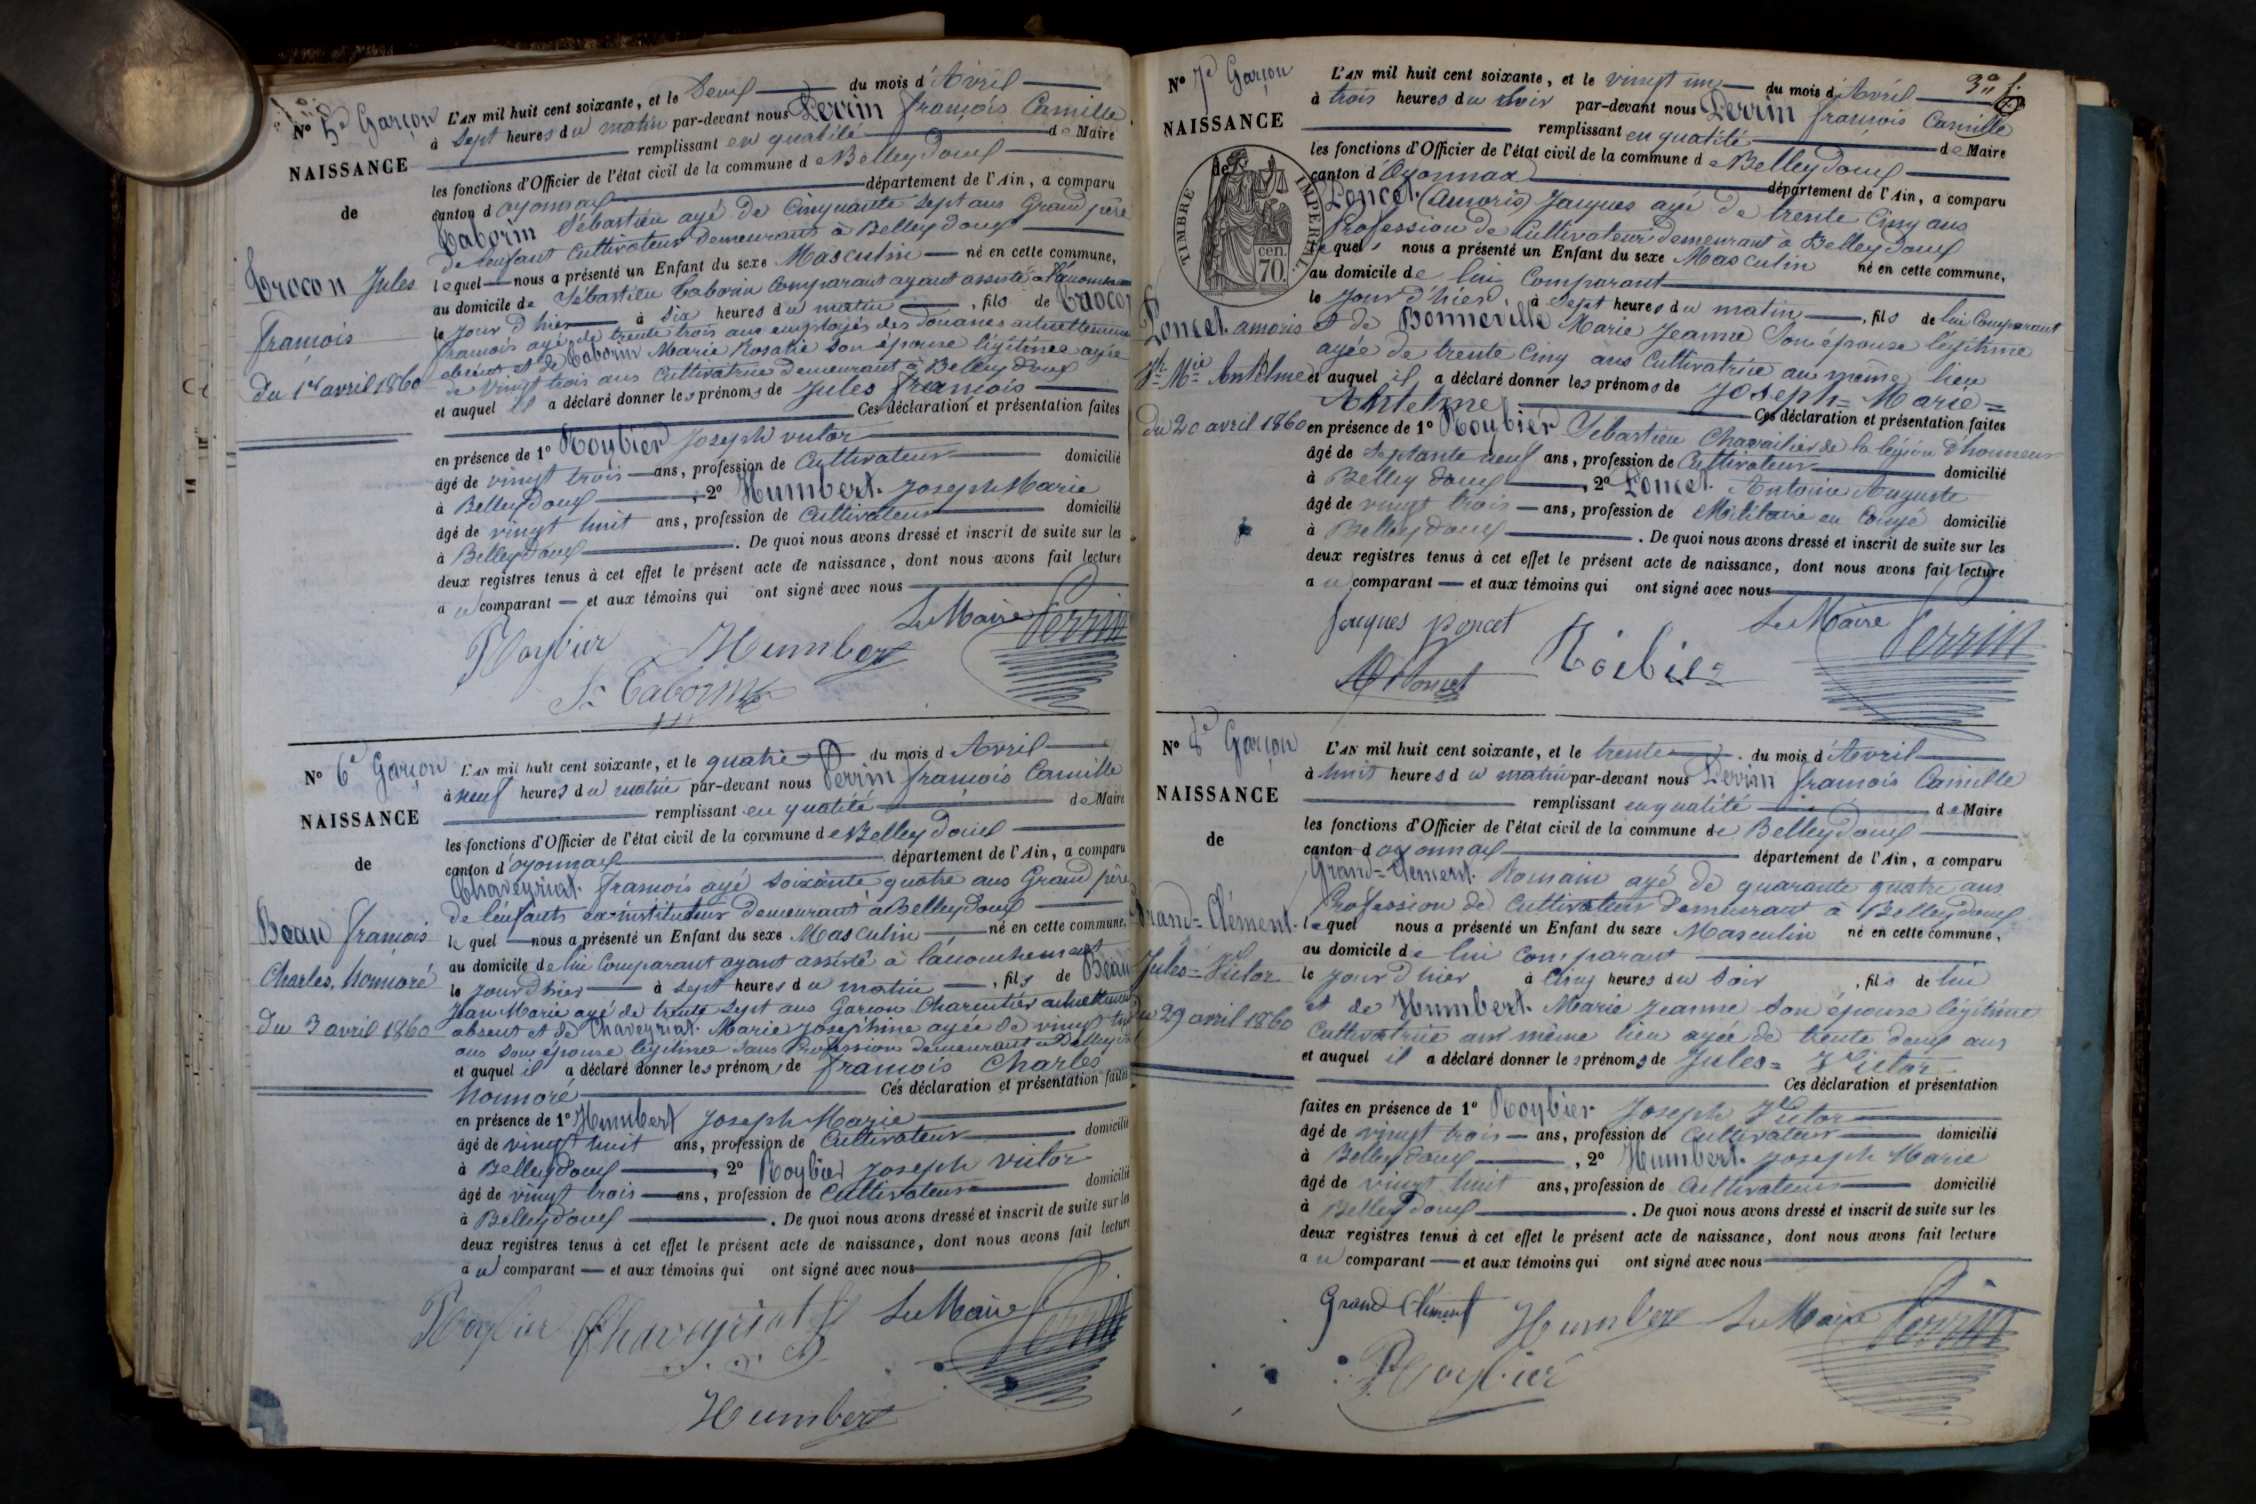 N° 5e Garçon
NAISSANCE
de
Crocon Jules
françois
du 1er avril 1860
L'AN mil huit cent soixante, et le Deux du mois d'Avril
à Sept heures du matin par-devant nous Perrin françois Camille
remplissant en qualité de Maire
les fonctions d'Officier de l'état civil de la commune de Belleydoux
canton d'oyonnax département de l'Ain, a comparu
Taborin Sébastien agé de Cinquante Sept ans Grand père
de l'enfant Cultivateur demeurant à Belleydoux
lequel nous a présenté un Enfant du sexe Masculin né en cette commune,
au domicile de Sébastien Taborin Comparant ayant assisté à l'acouchem
le jour d'hier à six heures du matin, fils de Crocon
françois agé de trente trois ans employés des douanes actuellement
absent et de Taborin Marie Rosalie son épouse légitime agée
de Vingt trois ans Cultivatrice demeurant à Belleydoux
et auquel il a déclaré donner les prénoms de Jules françois
Ces déclaration et présentation faites
en présence de 1° Roybier Joseph victor
âgé de vingt trois ans, profession de Cultivateur domicilié
à Belleydoux, 2° Humbert Joseph Marie
âgé de vingt huit ans, profession de Cultivateur domicilié
à Belleydoux. De quoi nous avons dressé et inscrit de suite sur les
deux registres tenus à cet effet le présent acte de naissance, dont nous avons fait lecture
au comparant et aux témoins qui ont signé avec nous
Le Maire Perrin
Roybier Humbert
S. Taborin
N° 6e Garçon
NAISSANCE
de
Beau françois
Charles, honnoré
du 3 avril 1860
L'AN mil huit cent soixante, et le quatre du mois d Avril
à neuf heures du matin par-devant nous Perrin françois Camille
remplissant en qualité de Maire
les fonctions d'Officier de l'état civil de la commune de Belleydoux
canton d'oyonnax département de l'Ain, a comparu
Chaveyriat françois agé soixante quatre ans Grand père
de l'enfants ex-instituteur demeurant à Belleydoux
lequel nous a présenté un Enfant du sexe Masculin né en cette commune,
au domicile de lui Comparant ayant assisté à l'acouchement
le jour d'hier à sept heures du matin, fils de Beau
Jean Marie agé de trente sept ans Garçon Charcutier actuellement
absent et de Chaveyriat Marie Joséphine agée de vingt
ans son épouse légitime sans Profession demeurant à Belleyd
et auquel il a déclaré donner les prénoms de françois Charles
honnoré Ces déclaration et présentation faites
en présence de 1° Humbert Joseph Marie
âgé de vingt huit ans, profession de Cultivateur domicilié
à Belleydoux, 2° Roybier Joseph victor
âgé de vingt trois ans, profession de Cultivateur domicilié
à Belleydoux. De quoi nous avons dressé et inscrit de suite sur les
deux registres tenus à cet effet le présent acte de naissance, dont nous avons fait lecture
au comparant et aux témoins qui ont signé avec nous
Roybier Chaveyriat Le Maire Perrin
Humbert
N° 7e Garçon
NAISSANCE
de
TIMBRE IMPERIAL
70 cen.
Poncet amoris
Jh Mie Antelme
du 20 avril 1860
L'AN mil huit cent soixante, et le vingt un du mois d'Avril
à trois heures du soir par-devant nous Perrin françois Camille
remplissant en qualité de Maire
les fonctions d'Officier de l'état civil de la commune de Belleydoux
canton d'Oyonnax département de l'Ain, a comparu
Poncet (Amoris) Jacques agé de trente Cinq ans
Profession de Cultivateur demeurant à Belleydoux
lequel nous a présenté un Enfant du sexe Masculin né en cette commune,
au domicile de lui Comparant
le jour d'hier, à Sept heures du matin, fils de lui Comparant
et de Bonneville Marie Jeanne Son épouse légitime
agée de trente Cinq ans Cultivatrice au même lieu
et auquel il a déclaré donner les prénoms de Joseph= Marie=
Antelme Ces déclaration et présentation faites
en présence de 1° Roybier Sébastien Chavailier de la légion d'honneur
âgé de Septante neuf ans, profession de Cultivateur domicilié
à Belleydoux, 2° Poncet Antoine Auguste
âgé de vingt trois ans, profession de Militaire en Congé domicilié
à Belleydoux. De quoi nous avons dressé et inscrit de suite sur les
deux registres tenus à cet effet le présent acte de naissance, dont nous avons fait lecture
au comparant et aux témoins qui ont signé avec nous
Jacques poncet Le Maire Perrin
Poncet Roibier
N° 8e Garçon
NAISSANCE
de
Grand=Clément
Jules=Victor
du 29 avril 1860
L'AN mil huit cent soixante, et le trente du mois d'Avril
à huit heures du matin par-devant nous Perrin françois Camille
remplissant en qualité de Maire
les fonctions d'Officier de l'état civil de la commune de Belleydoux
canton d oyonnax département de l'Ain, a comparu
Grand=Clément Romain agé de quarante quatre ans
Profession de Cultivateur demeurant à Belleydoux
lequel nous a présenté un Enfant du sexe Masculin né en cette commune,
au domicile de lui Comparant
le jour d'hier à Cinq heures du Soir, fils de lui
et de Humbert Marie Jeanne Son épouse légitime
Cultivatrice au même lieu agée de trente deux ans
et auquel il a déclaré donner les prénoms de Jules= Victor
Ces déclaration et présentation
faites en présence de 1° Roybier Joseph Victor
âgé de vingt trois ans, profession de Cultivateur domicilié
à Belleydoux, 2° Humbert Joseph Marie
âgé de vingt huit ans, profession de Cultivateur domicilié
à Belleydoux. De quoi nous avons dressé et inscrit de suite sur les
deux registres tenus à cet effet le présent acte de naissance, dont nous avons fait lecture
au comparant et aux témoins qui ont signé avec nous
Grand Clément Humbert Le Maire Perrin
Roybier